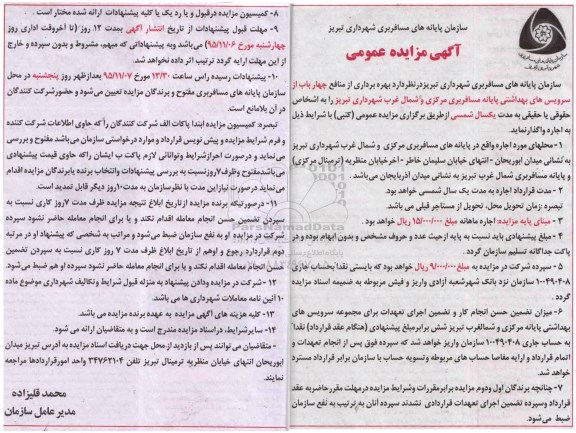 سازمان پایانه های مسافربری شهرداری تبریز
آگهی مزایده عمومی
سازمان پایانه های مسافربری شهرداری تبریزدرنظردارد بهره برداری از منافع چهار باب از
سرویس های بهداشتی پایانه مسافربری مرکزی و شمال غرب شهرداری تبریز را به اشخاص
حقوقی یا حقیقی به مدت یکسال شمسی ازطریق برگزاری مزایده عمومی (کتبی) با شرایط ذیل
به اجاره واگذارنماید.
۱- محلهای مورد اجاره واقع در پایانه های مسافربری مرکزی و شمال غرب شهرداری تبریز
به نشانی میدان ابوریحان - انتهای خیابان سلیمان خاطر - آخرخیابان منظریه (ترمینال مرکزی)
و پایانه مسافربری شمال غرب تبریز به نشانی میدان آذربایجان می‌باشد .
۲- مدت قرارداد اجاره به مدت یک سال شمسی خواهد بود.
تبصره :زمان تحویل محل، تحویل از مستاجر قبلی می باشد.
۳ - مبنای پایه مزایده: اجاره ماهانه مبلغ ۱۵/۰۰۰/۰۰۰ ریال خواهد بود .
۴- مبلغ پیشنهادی باید نسبت به پایه ازحیث عدد و حروف مشخص و بدون ابهام بوده و در
پاکت جداگانه تسلیم سازمان گردد .
۵ - سپرده شرکت در مزایده به مبلغ ۹/۰۰۰/۰۰۰ ریال خواهد بود که بایستی نقدا بحساب جاری
۱۰۰۴۹۰۴۰۸ سازمان نزد بانک شهرشعبه آزادی واریز و فیش مربوطه به ضمیمه اسناد مزایده
گردد.
۶- میزان تضمین حسن انجام کار و تضمین اجرای تعهدات برای مجموعه سرویس های
بهداشتی پایانه مرکزی و شمالغرب تبریز شش برابرمبلغ پیشنهادی (هنگام عقد قرارداد) نقدا"
به حساب جاری ۱۰۰۴۹۰۴۰۸ سازمان واریز خواهد شد که سپرده فوق پس از انجام تعهدات و
اتمام قرارداد و ارایه مفاصا حساب های مربوطه وتسویه حساب با سازمان برابر قرارداد مسترد
خواهد شد.
۷- چنانچه برندگان اول ودوم مزایده برابرمقررات وشرایط مزایده درمهلت مقررحاضربه عقد
قرارداد وسپرده تضمین اجرای تعهدات قراردادی نشدند سپرده آنان به ترتیب به نفع سازمان
ضبط می‌شود.
۸- کمیسیون مزایده درقبول و یا رد یک یا کلیه پیشنهادات ارائه شده مختار است .
۹- مهلت قبول پیشنهادات از تاریخ انتشار آگهی بمدت ۱۳ روز (تا آخروقت اداری روز
چهارشنبه مورخ ۹۵/۱۱/۰۶) می‌باشد وبه پیشنهاداتی که مبهم، مشروط و بدون سپرده و خارج
از این مهلت ارایه گردد ترتیب اثر داده نخواهد شد.
۱۰- پیشنهادات رسیده راس ساعت ۱۳/۳۰ مورخ ۹۵/۱۱/۰۷ بعدازظهر روز پنجشنبه در محل
سازمان پایانه های مسافربری مفتوح و برندگان مزایده تعیین می‌شود و حضورشرکت کنندگان
در آن بلامانع است.
تبصره: کمیسیون مزایده ابتدا پاکات الف شرکت کنندگان را که حاوی اطلاعات شرکت کننده
و فرم شرایط مزایده و پیش نویس قرارداد و موارد درخواستی سازمان می‌باشد مفتوح و بررسی
می‌نماید و درصورت احرازشرایط وتوانائی لازم پاکت ب ایشان راکه حاوی قیمت پیشنهادی
می‌باشدمفتوح وظرف ۷روزنسبت به بررسی پیشنهادات وانتخاب برنده یابرندگان مزایده اقدام
می‌نماید درصورت نیازاین مدت با نظرسازمان به مدت ۱۰روز دیگر قابل تمدید است.
۱۱- درصورتیکه برنده مزایده ازتاریخ ابلاغ نتیجه مزایده ظرف مدت ۷روز کاری نسبت به
سپردن تضمین حسن انجام معامله اقدام نکند و یا برای انجام معامله حاضر نشود سپرده
شرکت در مزایده او به نفع سازمان ضبط می‌شود و مراتب به شخصی که پیشنهاد او در مرتبه
دوم قراردارد رجوع و اوهم از تاریخ ابلاغ ظرف مدت ۷ روز کاری نسبت به سپردن تضمین
حسن انجام معامله اقدام نکند و یا برای انجام معامله حاضر نشود سپرده او هم ضبط می‌شود.
۱۲- شرکت در مزایده ودادن پیشنهاد به منزله قبول شرایط وتکالیف شهرداری موضوع ماده
۱۰ آئین نامه معاملات شهرداری ها می باشد.
۱۳- کلیه هزینه های آگهی مزایده به عهده برنده مزایده می باشد.
۱۴- سایرشرایط، دراسناد مزایده مندرج است و به متقاضیان ارائه می شود.
- متقاضیان می توانند پس از بازدید از محل جهت دریافت اسناد مزایده به آدرس تبریز میدان
ابوریحان انتهای خیابان منظریه ترمینال تبریز تلفن ۳۴۷۶۲۱۰۴ واحد امورقراردادها مراجعه
نمایند.
محمد قلیزاده
مدیر عامل سازمان